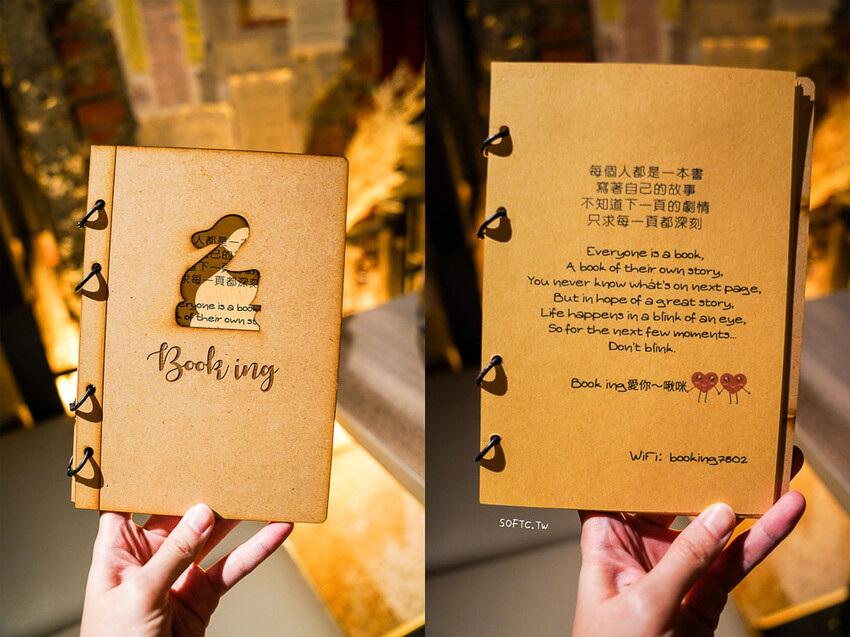 人都是一
己的
下一
求每一頁都深刻
eryone is a book
of their own st
Book ing
每個人都是一本書
寫著自己的故事
不知道下一頁的劇情
只求每一頁都深刻
Everyone is a book,
A book of their own story,
You never know what's on next page,
But in hope of a great story,
Life happens in a blink of an eye,
So for the next few moments...
Don't blink.
Book ing愛你～啾咪
WiFi: booking7802
SOFTC.TW